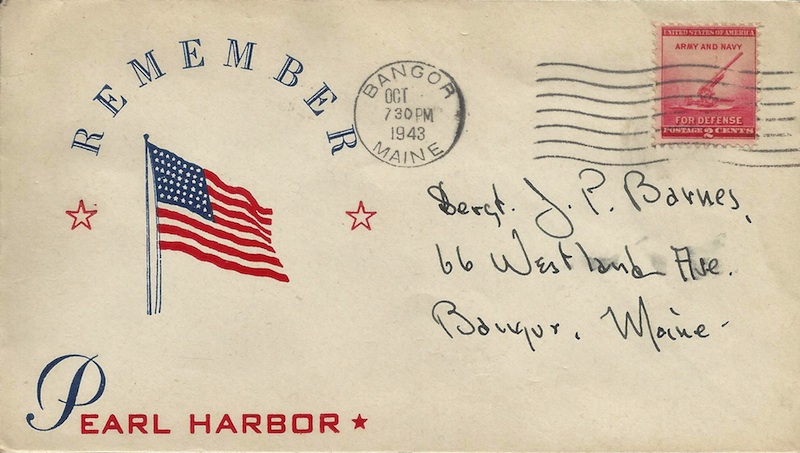 REMEMBER
PEARL HARBOR
BANGOR
OCT
7 30 PM
1943
MAINE
UNITED STATES OF AMERICA
ARMY AND NAVY
FOR DEFENSE
POSTAGE 2 CENTS
Sergt. J. P. Barnes,
66 Westland Ave.
Bangor, Maine